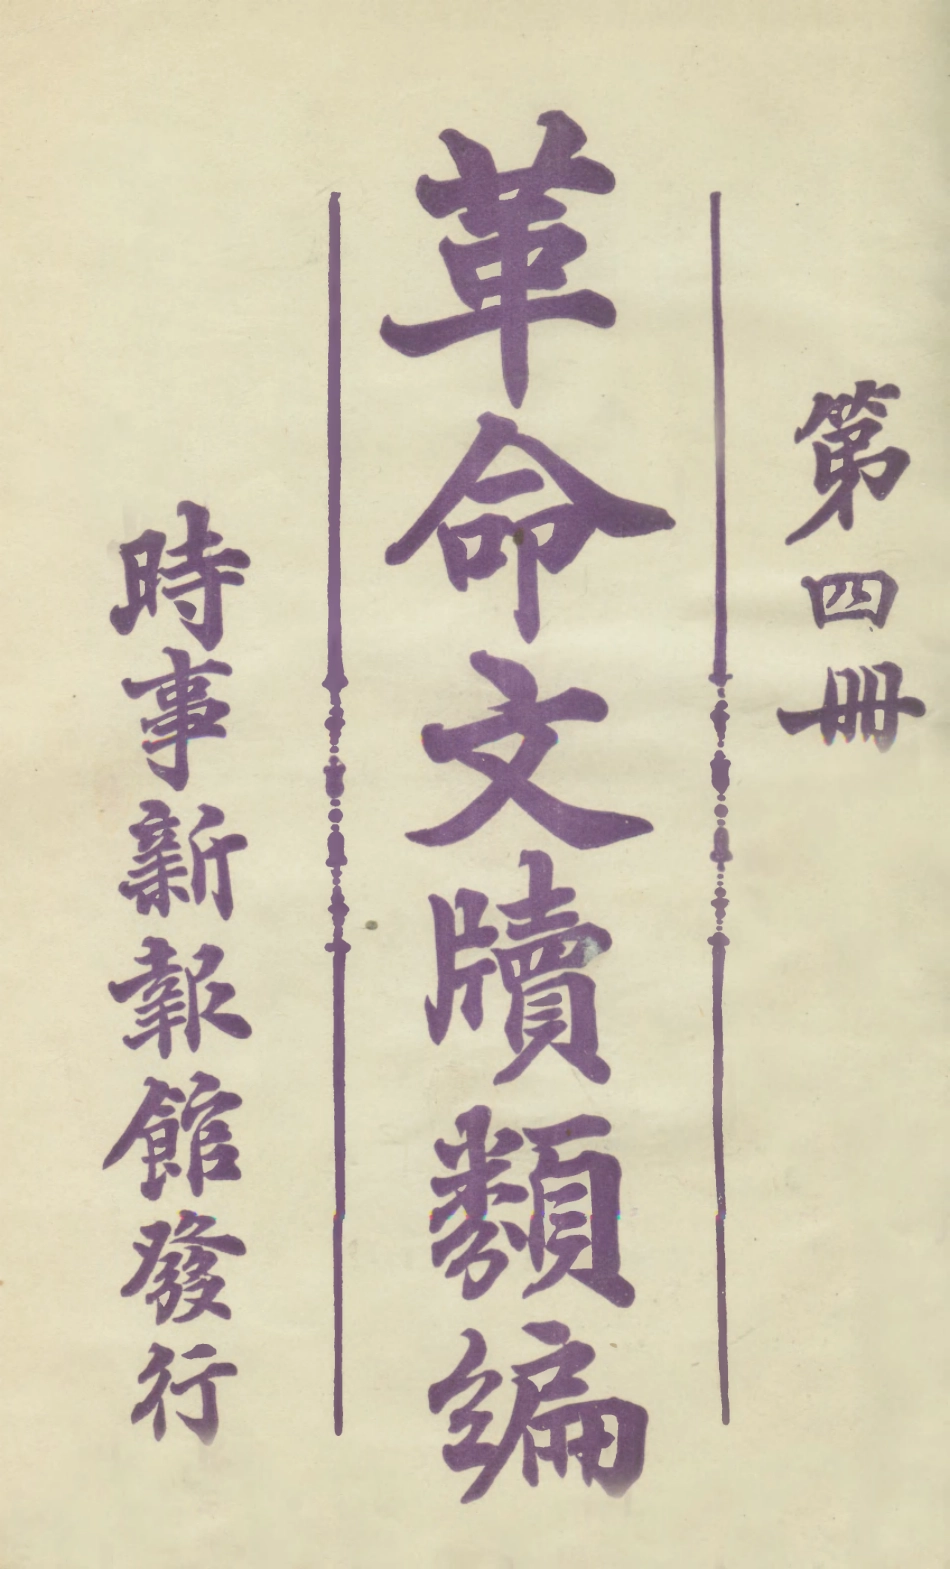 第四冊
革命文牘類編
時事新報館發行